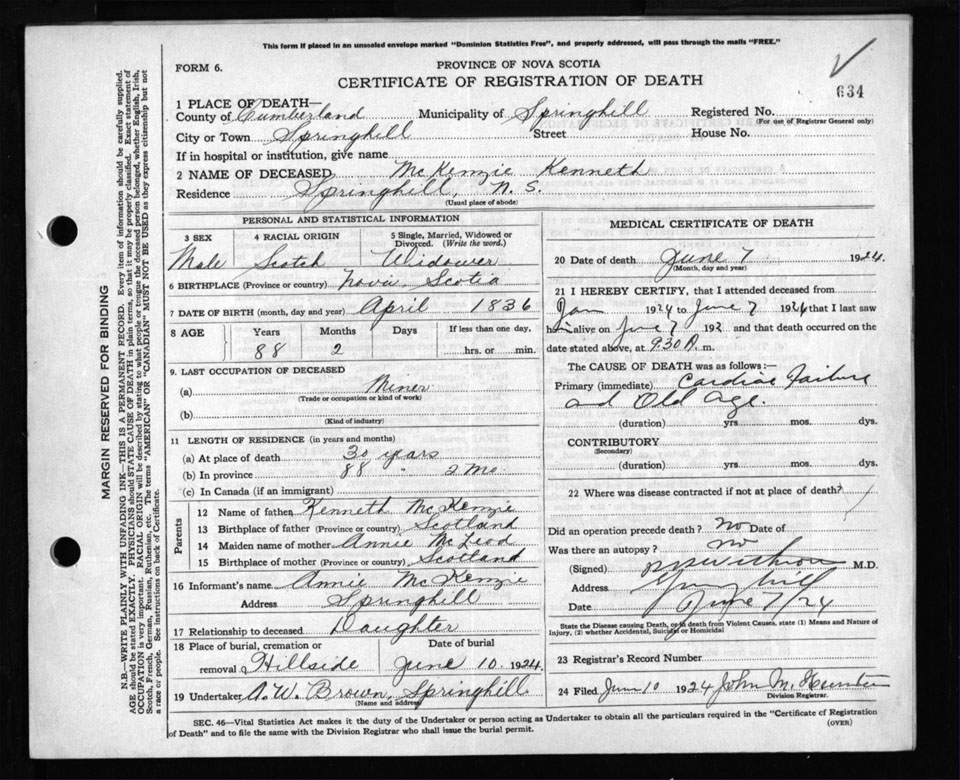 This form if placed in an unsealed envelope marked "Dominion Statistics Free", and properly addressed, will pass through the mails "FREE."
FORM 6.
PROVINCE OF NOVA SCOTIA
CERTIFICATE OF REGISTRATION OF DEATH
634
1 PLACE OF DEATH—
County of Cumberland Municipality of Springhill Registered No.
(For use of Registrar General only)
City or Town Springhill Street House No.
If in hospital or institution, give name
2 NAME OF DECEASED McKenzie Kenneth
Residence Springhill, N. S.
(Usual place of abode)
PERSONAL AND STATISTICAL INFORMATION
3 SEX 4 RACIAL ORIGIN 5 Single, Married, Widowed or Divorced. (Write the word.)
Male Scotch Widower
6 BIRTHPLACE (Province or country) Nova Scotia
7 DATE OF BIRTH (month, day and year) April 1836
8 AGE Years Months Days If less than one day,
88 2 hrs. or min.
9. LAST OCCUPATION OF DECEASED
(a) Miner
(Trade or occupation or kind of work)
(b)
(Kind of industry)
11 LENGTH OF RESIDENCE (in years and months)
(a) At place of death 30 years
(b) In province 88 " 2 Mo
(c) In Canada (if an immigrant)
Parents
12 Name of father Kenneth McKenzie
13 Birthplace of father (Province or country) Scotland
14 Maiden name of mother Annie McLeod
15 Birthplace of mother (Province or country) Scotland
16 Informant's name Annie McKenzie
Address Springhill
17 Relationship to deceased Daughter
18 Place of burial, cremation or removal Hillside
Date of burial June 10 1924
19 Undertaker A. W. Brown, Springhill
(Name and address)
MEDICAL CERTIFICATE OF DEATH
20 Date of death June 7 1924
(Month, day and year)
21 I HEREBY CERTIFY, that I attended deceased from
Jan 1924 to June 7 1924 that I last saw
him alive on June 7 192 and that death occurred on
date stated above, at 9.30 A. m.
The CAUSE OF DEATH was as follows:—
Primary (immediate) Cardiac Failure
and Old Age.
(duration) yrs. mos. dys.
CONTRIBUTORY
(Secondary)
(duration) yrs. mos. dys.
22 Where was disease contracted if not at place of death?
Did an operation precede death? no Date of
Was there an autopsy? no
(Signed) M.D.
Address Springhill
Date June 7/24
State the Disease causing Death, or in death from Violent Causes, state (1) Means and Nature of
Injury, (2) whether Accidental, Suicidal or Homicidal
23 Registrar's Record Number
24 Filed June 10 1924 John M. Hunter
Division Registrar.
SEC. 46—Vital Statistics Act makes it the duty of the Undertaker or person acting as Undertaker to obtain all the particulars required in the "Certificate of Registration
of Death" and to file the same with the Division Registrar who shall issue the burial permit.
(OVER)
MARGIN RESERVED FOR BINDING
N.B.—WRITE PLAINLY WITH UNFADING INK—THIS IS A PERMANENT RECORD. Every item of information should be carefully supplied.
AGE should be stated EXACTLY. PHYSICIANS should STATE CAUSE OF DEATH in plain terms, so that it may be properly classified. Exact statement of
OCCUPATION is very important. RACIAL ORIGIN will be described by stating to what people or tongue the deceased person belonged, whether English, Irish,
Scotch, French, German, Russian, Ruthenian, etc. The terms "AMERICAN" OR "CANADIAN" MUST NOT BE USED as they express citizenship but not
a race or people. See instructions on back of Certificate.